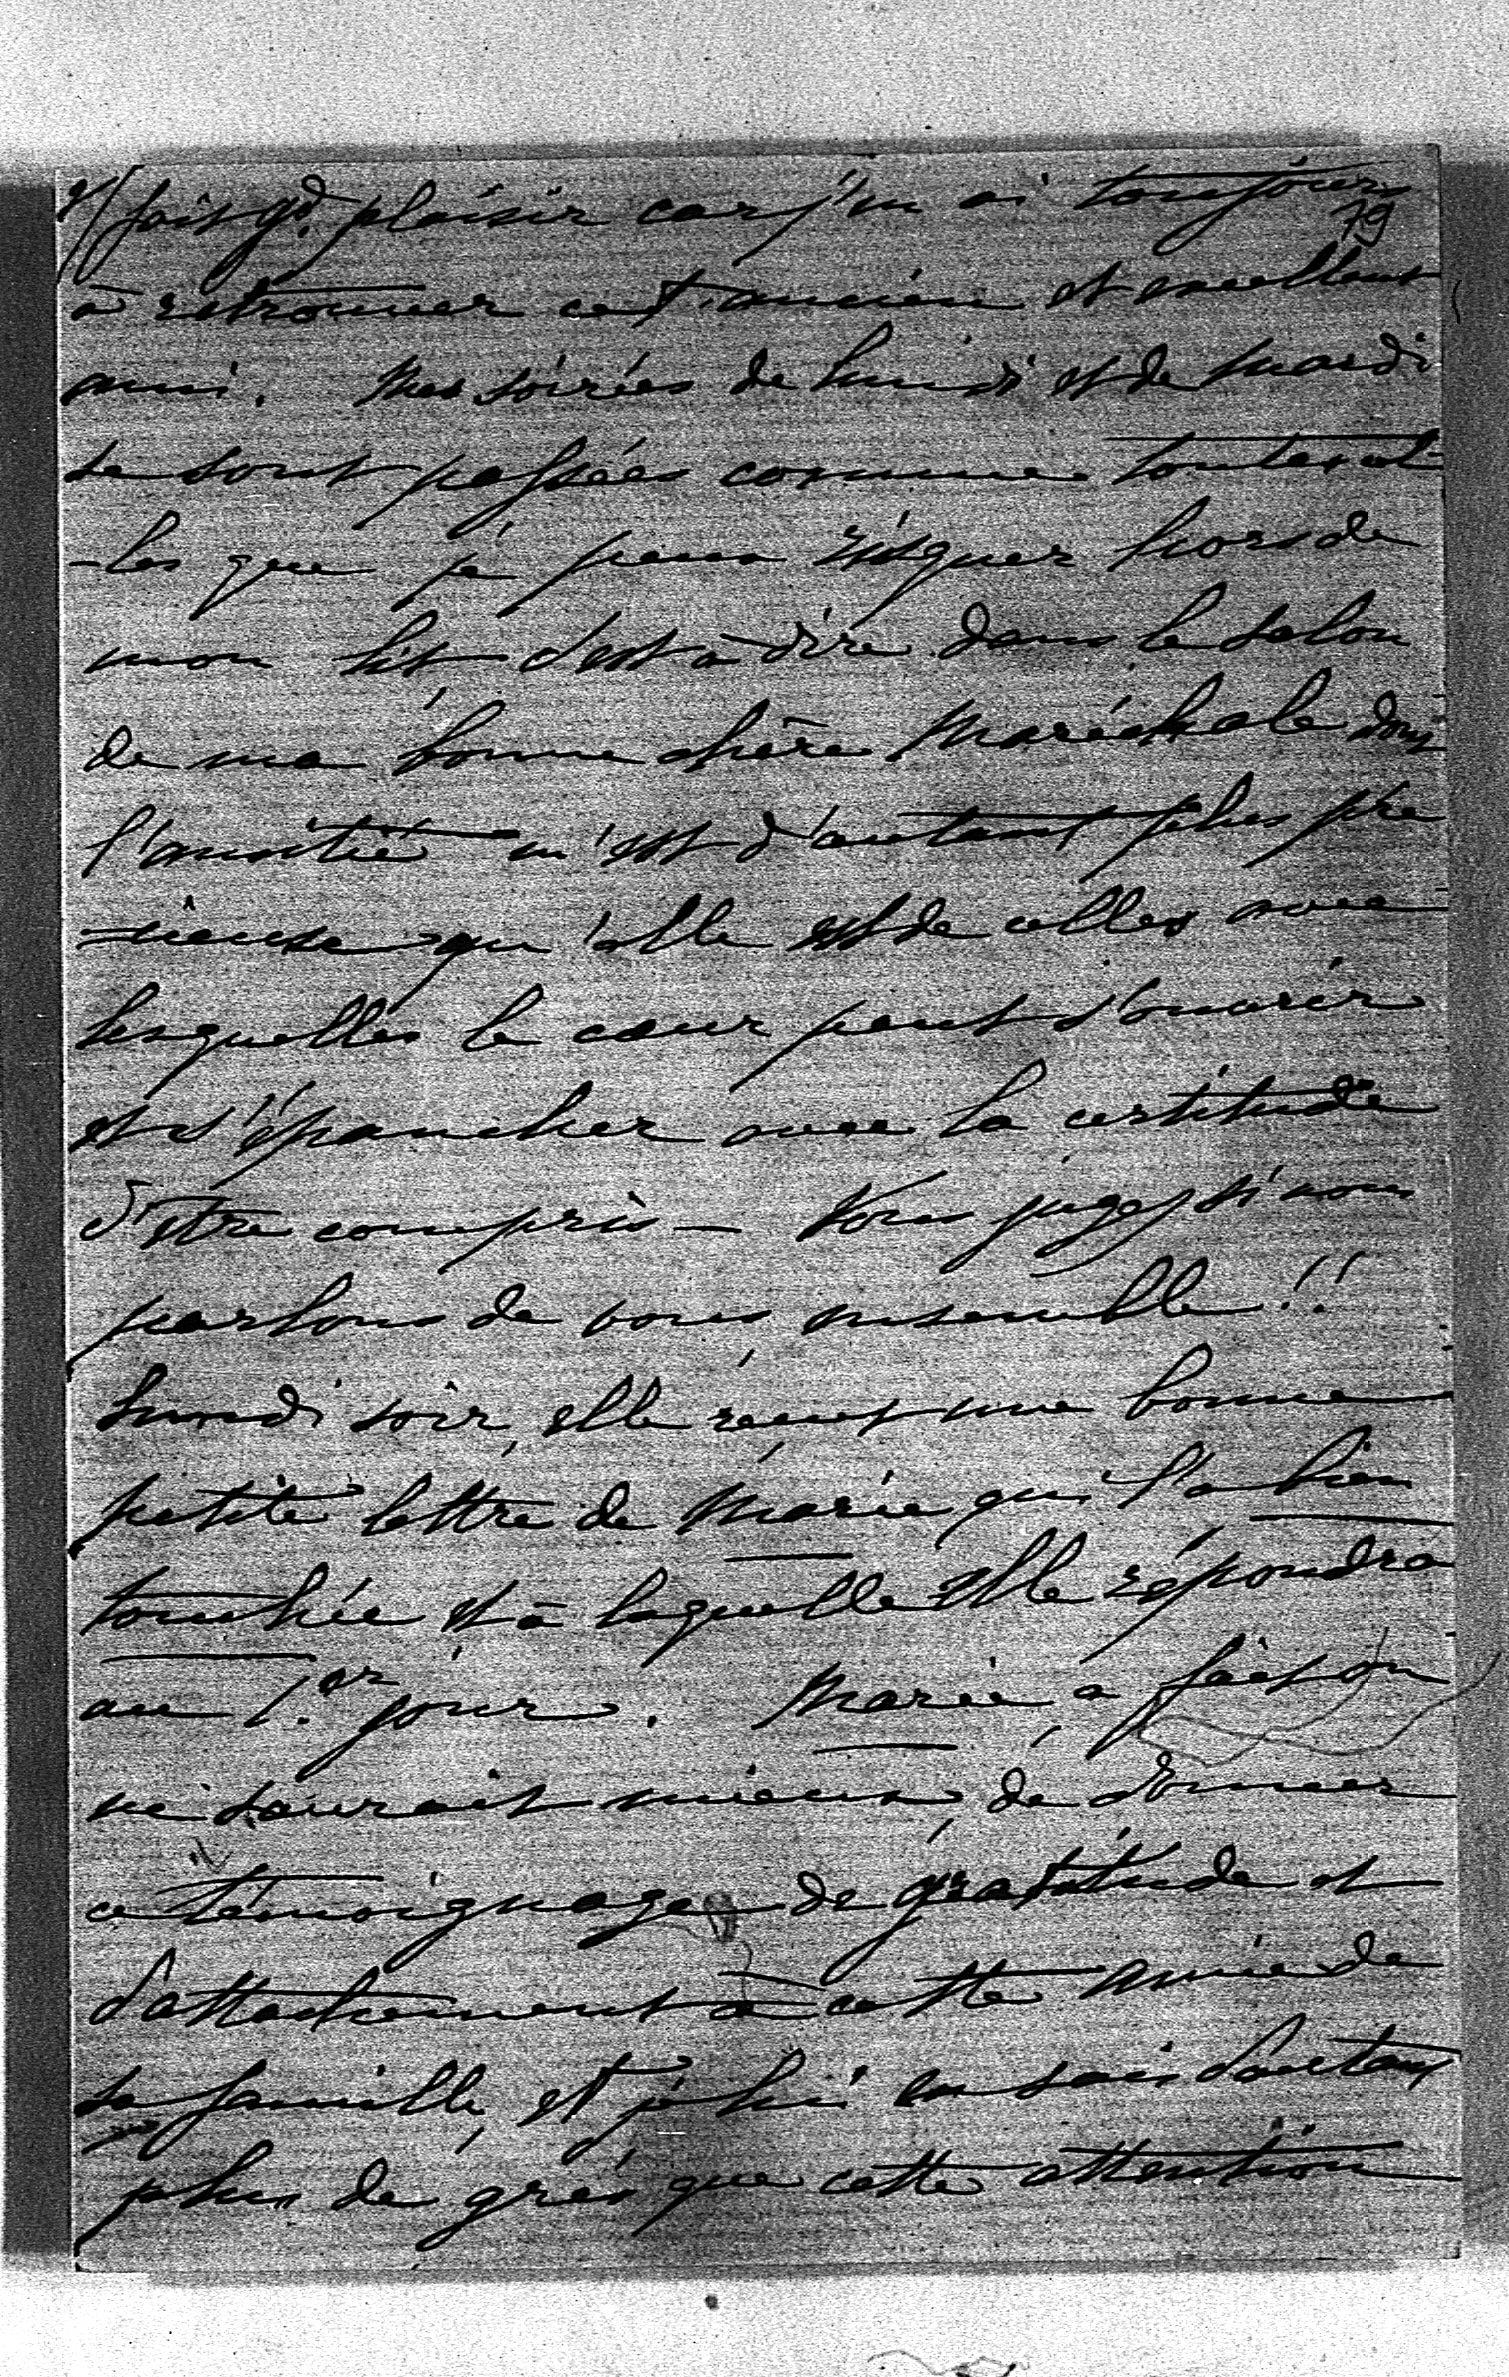 2/ fait gd. plaisir car j'en ai toujours
79
à retrouver cet ancien et excellent
ami. Mes soirées de lundi et de mardi
se sont passées comme toutes cel-
-les que je peux risquer hors de
mon lit c'est à dire dans le salon
de ma bonne chère Maréchale dont
l'amitié m'est d'autant plus pré
-cieuse qu'elle est de celles avec
lesquelles le cœur peut s'ouvrir
et s'épancher avec la certitude
d'être compris — Vous jugez si nous
parlons de vous ensemble !!
Lundi soir, elle reçut une bonne
petite lettre de Marie qui l'a bien
touchée et à laquelle elle répondra
au 1.er jour. Marie a fait on
ne saurait mieux, de donner
ce témoignage de gratitude et
d'attachement à cette amie de
sa famille, et je lui en sais d'autant
plus de gré que cette attention